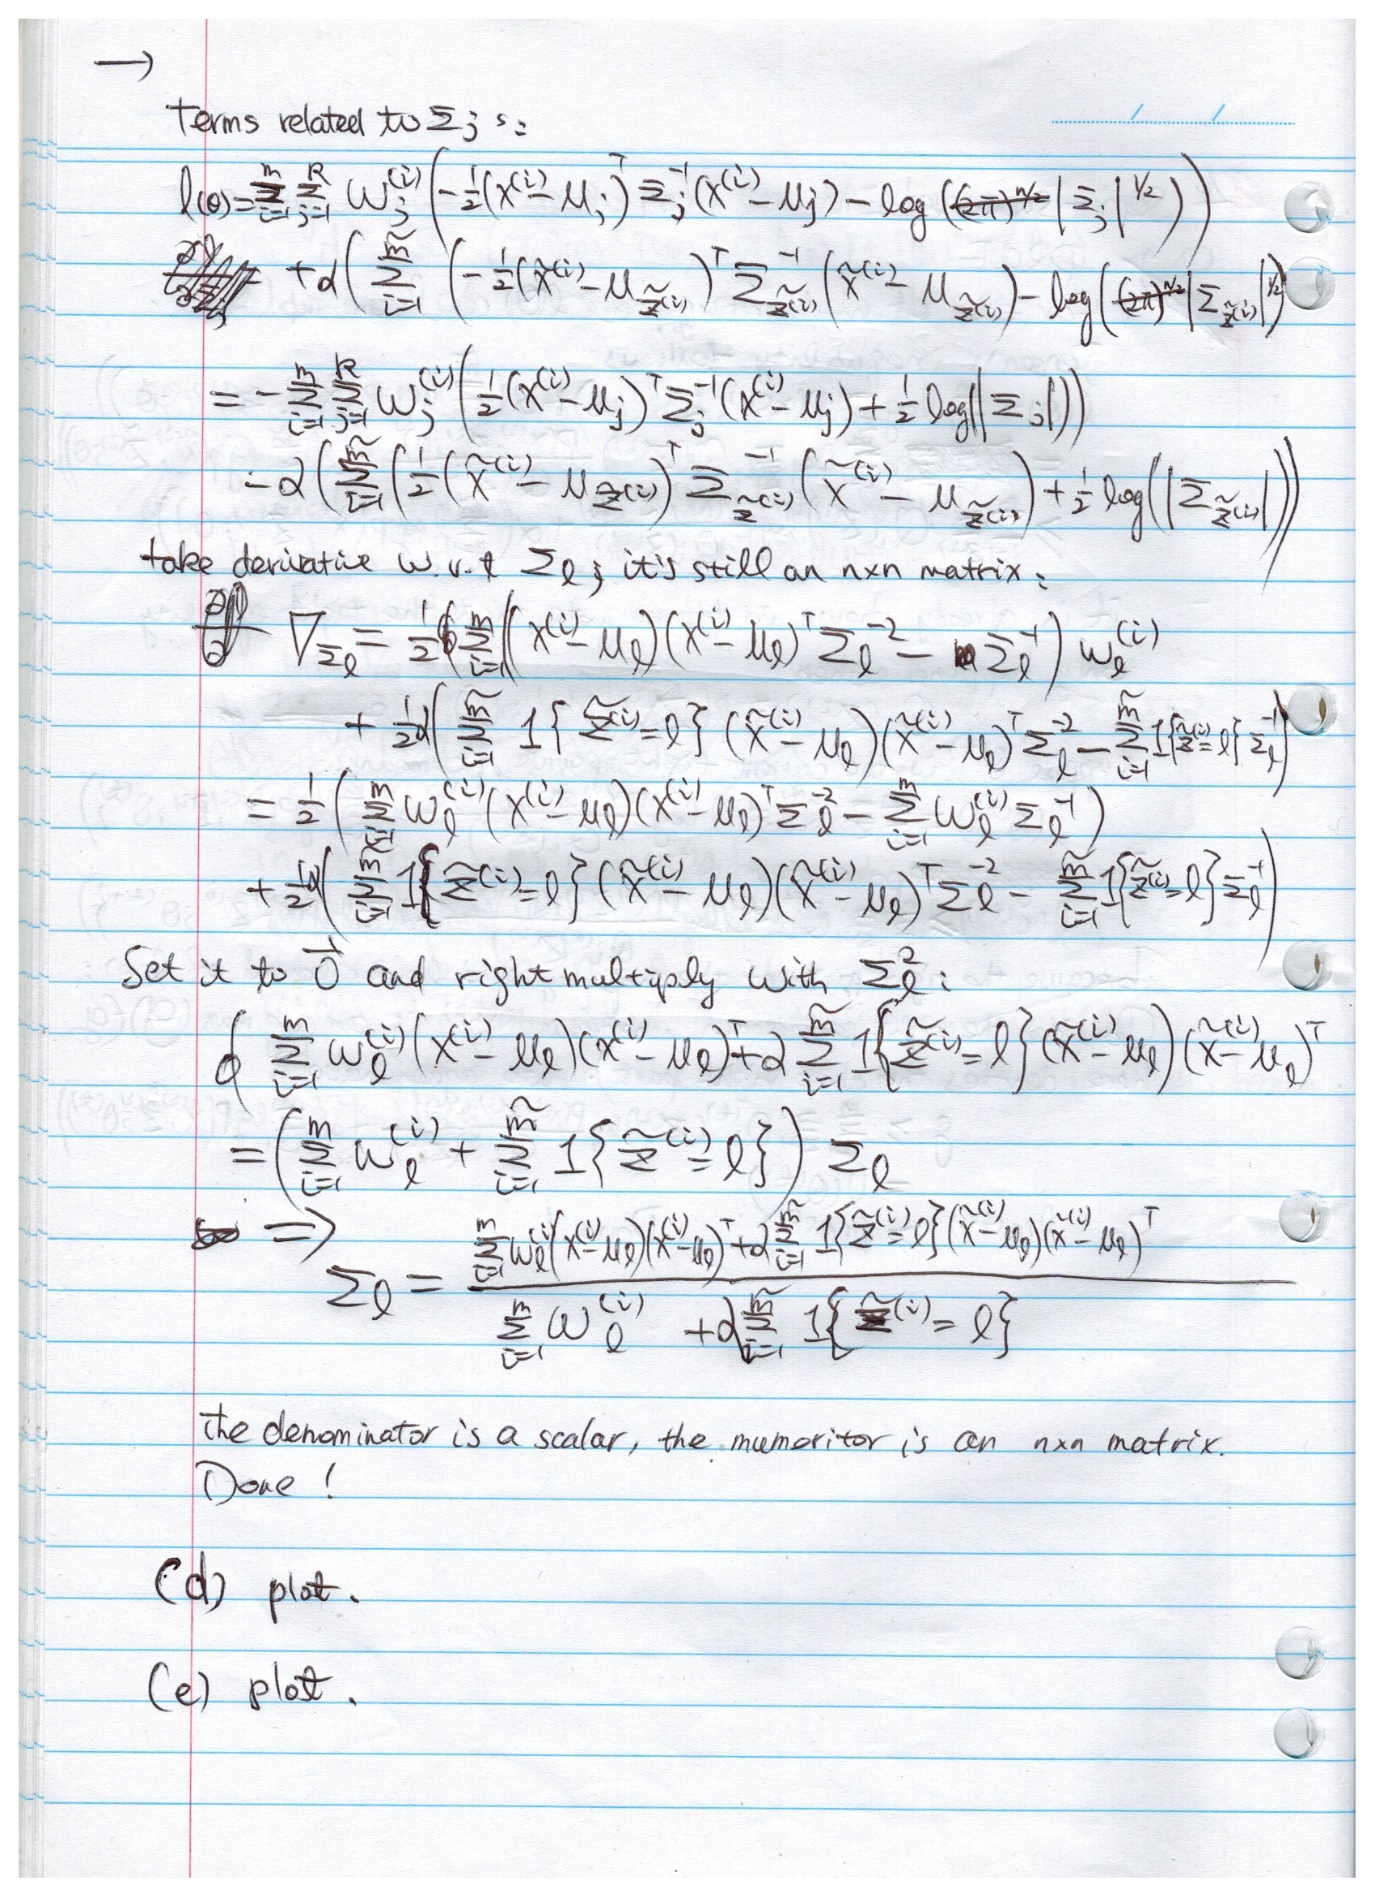 →
Terms related to Σ_j s:
l(θ) = Σ_{i=1}^{m} Σ_{j=1}^{k} w_j^{(i)} ( -1/2 (x^{(i)} - μ_j)^T Σ_j^{-1} (x^{(i)} - μ_j) - log ( (2π)^{n/2} |Σ_j|^{1/2} ) )
+ α ( Σ_{i=1}^{m̃} ( -1/2 (x̃^{(i)} - μ_{z̃^{(i)}})^T Σ_{z̃^{(i)}}^{-1} (x̃^{(i)} - μ_{z̃^{(i)}}) - log ( (2π)^{n/2} |Σ_{z̃^{(i)}}|^{1/2} )
= - Σ_{i=1}^{m} Σ_{j=1}^{k} w_j^{(i)} ( 1/2 (x^{(i)} - μ_j)^T Σ_j^{-1} (x^{(i)} - μ_j) + 1/2 log(|Σ_j|) )
- α ( Σ_{i=1}^{m̃} ( 1/2 (x̃^{(i)} - μ_{z̃^{(i)}})^T Σ_{z̃^{(i)}}^{-1} (x̃^{(i)} - μ_{z̃^{(i)}}) + 1/2 log(|Σ_{z̃^{(i)}}|) ) )
take derivative w.r.t Σ_l, it's still an nxn matrix:
∇_{Σ_l} = 1/2 ( Σ_{i=1}^{m} ( (x^{(i)} - μ_l)(x^{(i)} - μ_l)^T Σ_l^{-2} - Σ_l^{-1} ) w_l^{(i)}
+ 1/2 α ( Σ_{i=1}^{m̃} 1{z̃^{(i)} = l} (x̃^{(i)} - μ_l)(x̃^{(i)} - μ_l)^T Σ_l^{-2} - Σ_{i=1}^{m̃} 1{z̃^{(i)} = l} Σ_l^{-1} )
= 1/2 ( Σ_{i=1}^{m} w_l^{(i)} (x^{(i)} - μ_l)(x^{(i)} - μ_l)^T Σ_l^{-2} - Σ_{i=1}^{m} w_l^{(i)} Σ_l^{-1} )
+ 1/2 α ( Σ_{i=1}^{m̃} 1{z̃^{(i)} = l} (x̃^{(i)} - μ_l)(x̃^{(i)} - μ_l)^T Σ_l^{-2} - Σ_{i=1}^{m̃} 1{z̃^{(i)} = l} Σ_l^{-1} )
Set it to 0⃗ and right multiply with Σ_l^2:
Σ_{i=1}^{m} w_l^{(i)} (x^{(i)} - μ_l)(x^{(i)} - μ_l)^T + α Σ_{i=1}^{m̃} 1{z̃^{(i)} = l} (x̃^{(i)} - μ_l)(x̃^{(i)} - μ_l)^T
= ( Σ_{i=1}^{m} w_l^{(i)} + Σ_{i=1}^{m̃} 1{z̃^{(i)} = l} ) Σ_l
⇒
Σ_l = ( Σ_{i=1}^{m} w_l^{(i)} (x^{(i)} - μ_l)(x^{(i)} - μ_l)^T + α Σ_{i=1}^{m̃} 1{z̃^{(i)} = l} (x̃^{(i)} - μ_l)(x̃^{(i)} - μ_l)^T ) / ( Σ_{i=1}^{m} w_l^{(i)} + α Σ_{i=1}^{m̃} 1{z̃^{(i)} = l} )
The denominator is a scalar, the mumeritor is an nxn matrix.
Done!
(d) plot.
(e) plot.